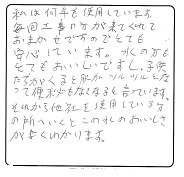 私は何年も使用しています。
毎回工事の方が来てくれて
おまかせですのでとても
安心しています。水の方も
とてもおいしいですし、子供
たちがいくと肌がツルツルとな
って便秘もなくなると言っています。
それから他社を使用している方
の所へいくとこの水のおいしさ
がよくわかります。